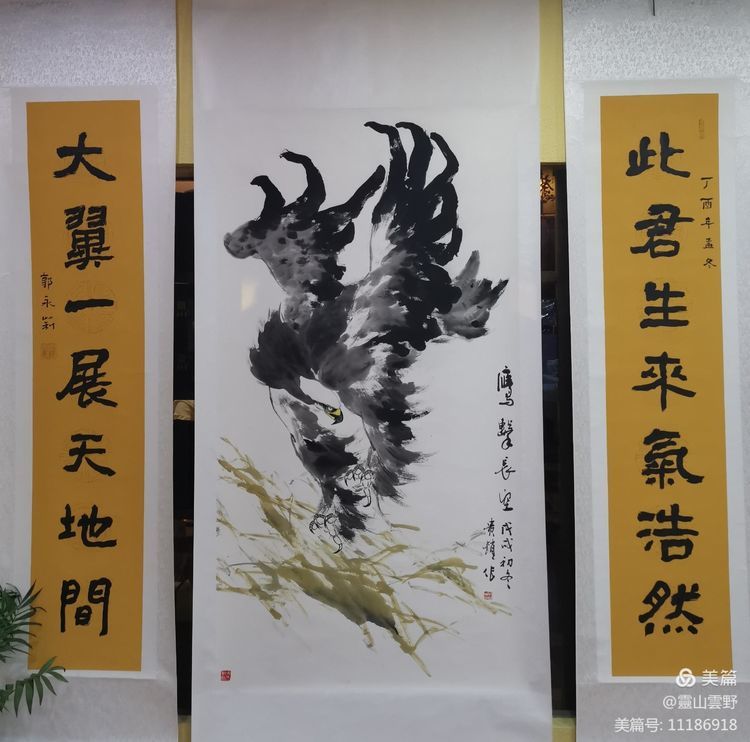 此君生來氣浩然
丁酉年孟冬
鷹擊長空
戊戌初冬
大翼一展天地間
郭永
美篇
@靈山雲野
美篇号: 11186918